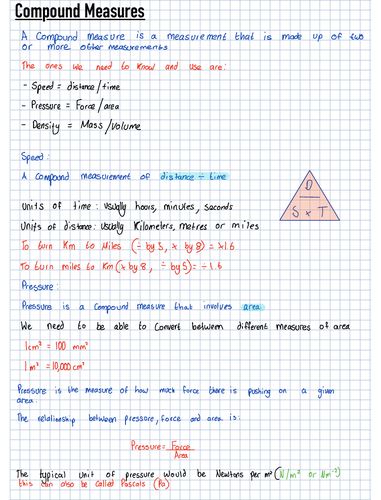 Compound Measures
A Compound measure is a measurement that is made up of two
or more other measurements
The ones we need to know and use are:
- Speed = distance/time
- Pressure = Force/area
- Density = Mass/Volume
Speed:
A compound measurement of distance ÷ time
D
S × T
Units of time: usually hours, minutes, seconds
Units of distance: usually Kilometers, metres or miles
To turn Km to Miles (÷ by 5, × by 8) = ×1.6
To turn miles to Km (× by 8, ÷ by 5) = ÷1.6
Pressure:
Pressure is a compound measure that involves area
We need to be able to convert between different measures of area
1cm² = 100 mm²
1 m² = 10,000 cm²
Pressure is the measure of how much force there is pushing on a given
area.
The relationship between pressure, force and area is:
Pressure = Force
Area
The typical unit of pressure would be Newtons per m² (N/m² or Nm⁻²)
this can also be called Pascals (Pa)